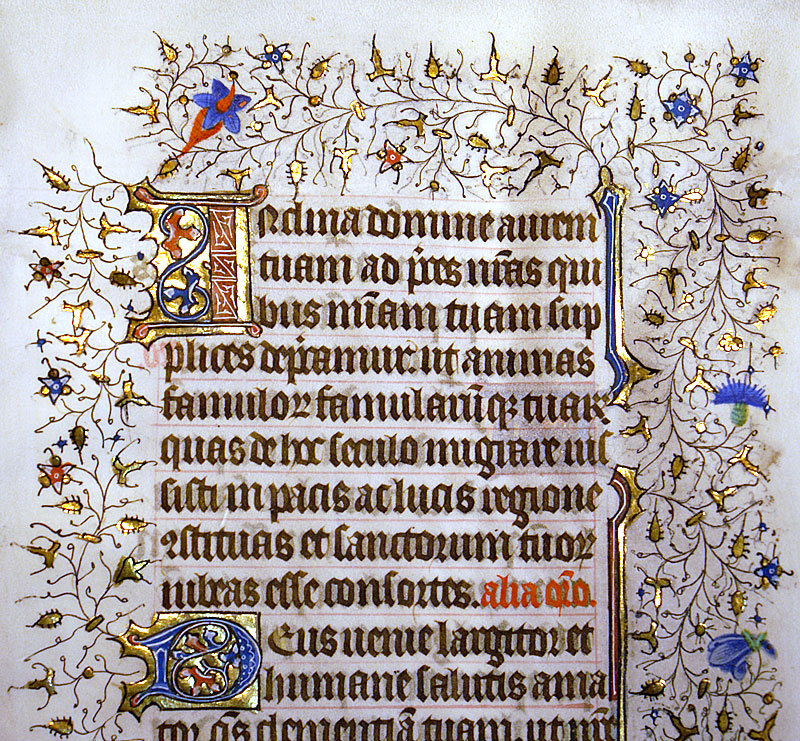 Inclina domine aurem
tuam ad p̄ces nr̄as qui
bus mīam tuam sup
plices dep̄camur. ut animas
famuloꝝ famularūqꝫ tuaꝝ
quas de hoc seculo migrare ius
sisti in pacis ac lucis regione
ꝯstituas et sanctorum tuoꝝ
iubeas esse consortes. alia or̄o.
Deus uenie largitor et
humane salutis ama
tor q̄s clementiā tuam. ut nr̄e